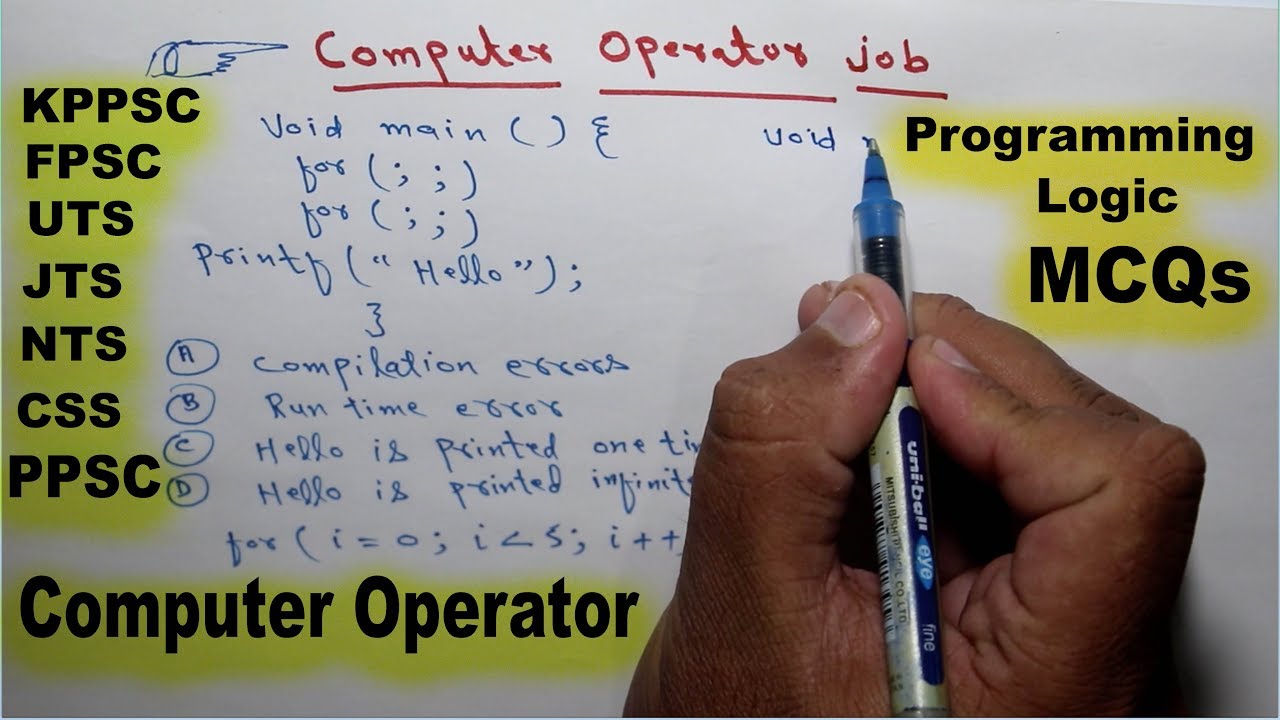 Computer Operator job
KPPSC
FPSC
UTS
JTS
NTS
CSS
PPSC
Void main ( ) {
for ( ; ; )
for ( ; ; )
Printf (" Hello");
}
A Compilation errors
B Run time error
C Hello is printed one
D Hello is printed
for ( i = 0 ; i < 5 ; i ++
Void
Programming
Logic
MCQs
Computer Operator
uni-ball eye
fine